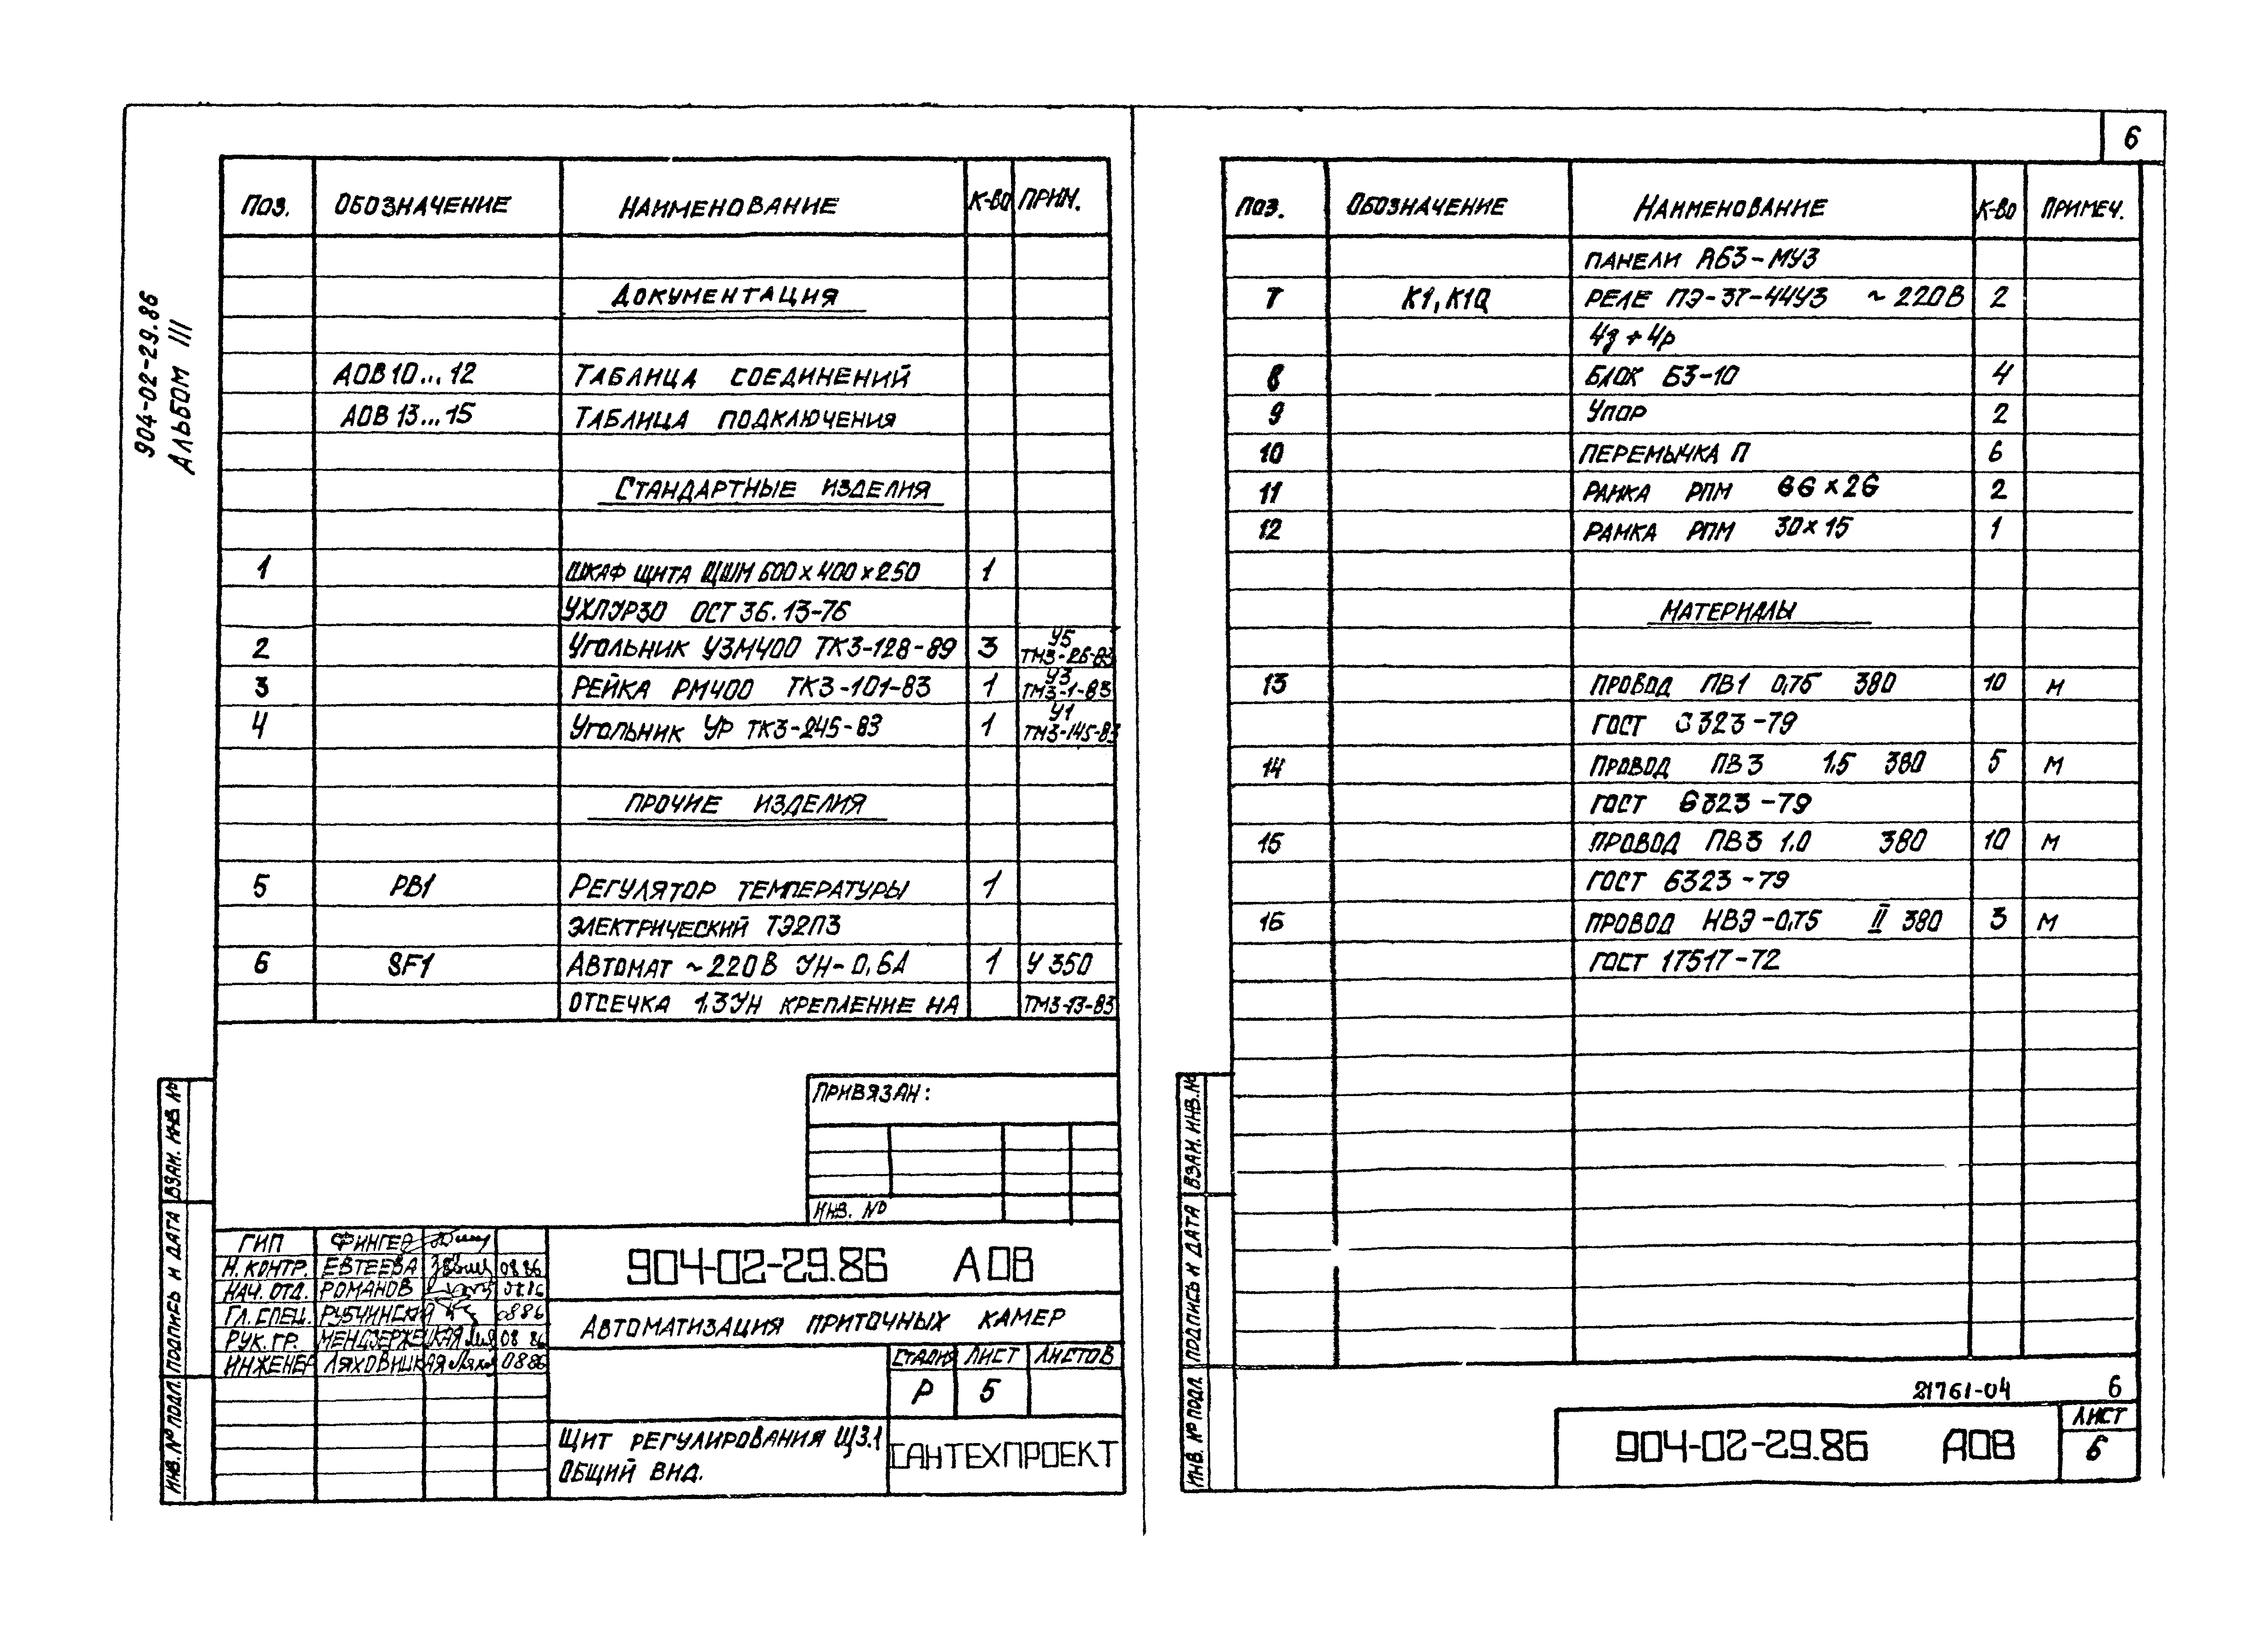 904-02-29.86
АЛЬБОМ III
ПОЗ. ОБОЗНАЧЕНИЕ НАИМЕНОВАНИЕ К-ВО ПРИМ.
ДОКУМЕНТАЦИЯ
АОВ 10...12 ТАБЛИЦА СОЕДИНЕНИЙ
АОВ 13...15 ТАБЛИЦА ПОДКЛЮЧЕНИЯ
СТАНДАРТНЫЕ ИЗДЕЛИЯ
1 ШКАФ ЩИТА ЩШМ 600х400х250 1
УХЛУР30 ОСТ 36.13-76
2 УГОЛЬНИК УЗМ400 ТК3-128-89 3 У5 ТМ3-26-83
3 РЕЙКА РМ400 ТК3-101-83 1 У3 ТМ3-1-83
4 УГОЛЬНИК УР ТК3-245-83 1 У1 ТМ3-145-83
ПРОЧИЕ ИЗДЕЛИЯ
5 РВ1 РЕГУЛЯТОР ТЕМПЕРАТУРЫ 1
ЭЛЕКТРИЧЕСКИЙ ТЭ2П3
6 SF1 АВТОМАТ ~220В УН-0,6А 1 У 350
ОТСЕЧКА 1,3УН КРЕПЛЕНИЕ НА ТМ3-13-83
ПРИВЯЗАН:
ИНВ. №
ГИП ФИНГЕР
Н.КОНТР. ЕВТЕЕВА 08.86
НАЧ. ОТД. РОМАНОВ 08.86
ГЛ. СПЕЦ. РУБЧИНСКИЙ 08.86
РУК. ГР. МЕНДЗЕРЖЕЦКАЯ 08.86
ИНЖЕНЕР ЛЯХОВИЦКАЯ 08.86
904-02-29.86 АОВ
АВТОМАТИЗАЦИЯ ПРИТОЧНЫХ КАМЕР
СТАДИЯ ЛИСТ ЛИСТОВ
Р 5
ЩИТ РЕГУЛИРОВАНИЯ Щ3.1
ОБЩИЙ ВИД.
САНТЕХПРОЕКТ
ИНВ. № ПОДЛ. ПОДПИСЬ И ДАТА ВЗАМ. ИНВ №
6
ПОЗ. ОБОЗНАЧЕНИЕ НАИМЕНОВАНИЕ К-ВО ПРИМЕЧ.
ПАНЕЛИ АБ3-МУ3
7 К1, К1Q РЕЛЕ ПЭ-37-44У3 ~220В 2
4з + 4р
8 БЛОК Б3-10 4
9 УПОР 2
10 ПЕРЕМЫЧКА П 6
11 РАМКА РПМ 66х26 2
12 РАМКА РПМ 30х15 1
МАТЕРИАЛЫ
13 ПРОВОД ПВ1 0,75 380 10 М
ГОСТ 6323-79
14 ПРОВОД ПВ3 1.5 380 5 М
ГОСТ 6323-79
15 ПРОВОД ПВ3 1.0 380 10 М
ГОСТ 6323-79
16 ПРОВОД НВЭ-0,75 II 380 3 М
ГОСТ 17517-72
21761-04 6
904-02-29.86 АОВ
ЛИСТ
6
ИНВ. № ПОДЛ. ПОДПИСЬ И ДАТА ВЗАМ. ИНВ.№